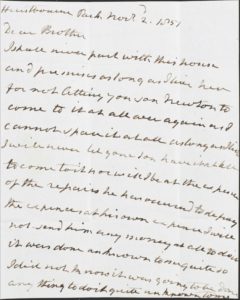 Hurstbourne Park Novr. 2. 1851
Dear Brother
I shall never part with this house
and premises as long as I live here
for not letting you son Newton to
come to it at all ever again as I
cannot spare it at all as long as I live
will never be gone Son have the like
to come to it nor will I be at the expence
of the repairs he has occured to defray
the expences at his own expence I will
not send him any money at all to do it
it was done unknown to me quite so
I did not know it was going to be
any thing to do it quite unknown